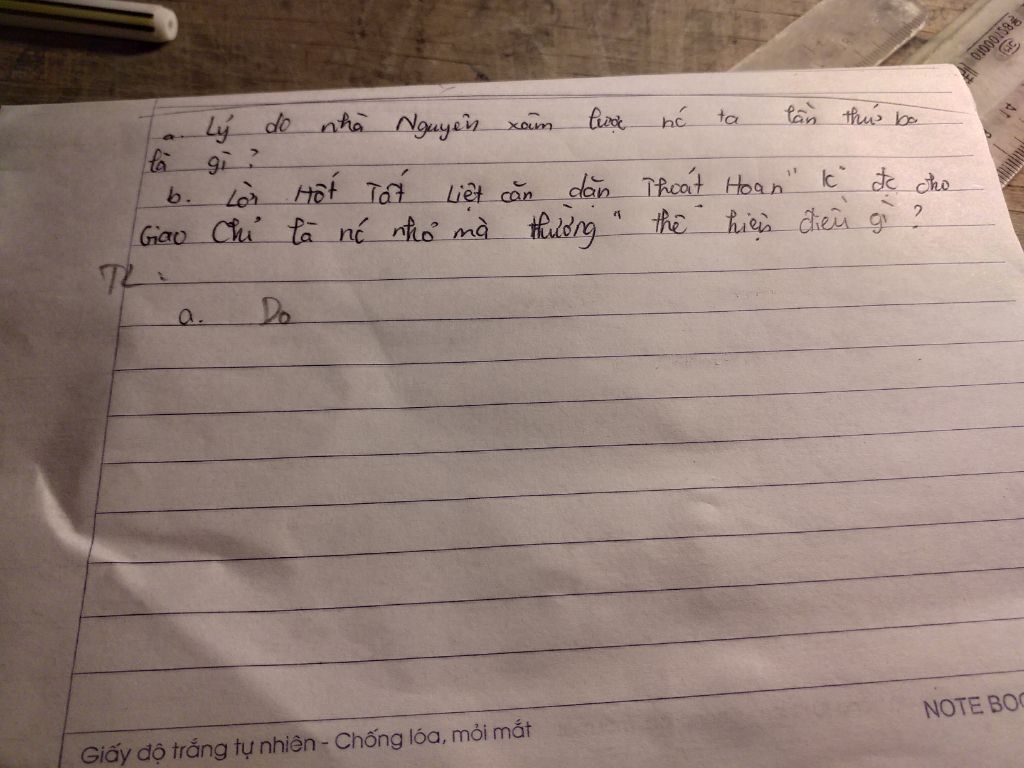 a. Lý do nhà Nguyên xâm lược nc ta lần thứ ba
là gì ?
b. Lời Hốt Tất Liệt căn dặn Thoát Hoan " k đc cho
Giao Chỉ là nc nhỏ mà thường " thể hiện điều gì ?
TL :
a. Do
Giấy độ trắng tự nhiên - Chống lóa, mỏi mắt
NOTE BOO